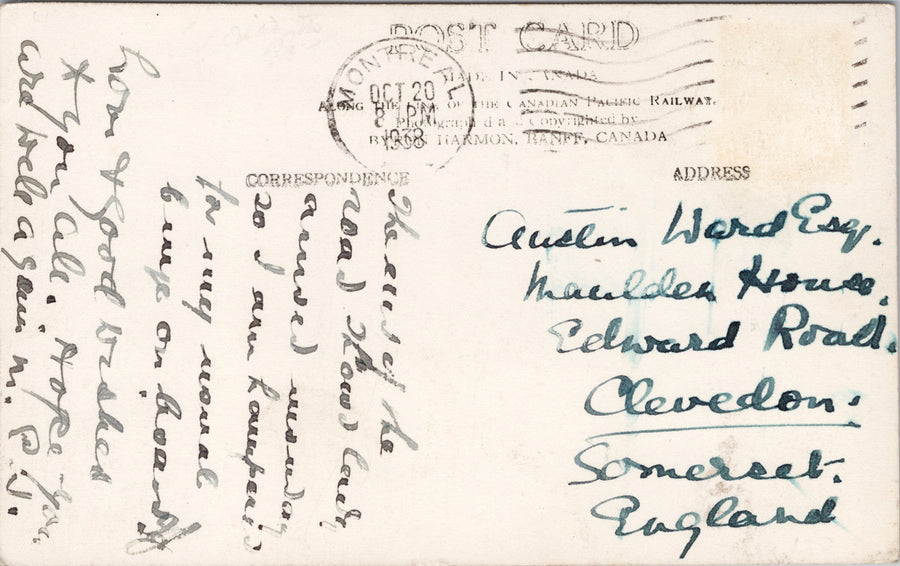 POST CARD
MADE IN CANADA
ALONG THE LINE OF THE CANADIAN PACIFIC RAILWAY.
Photographed and Copyrighted by
BYRON HARMON, BANFF, CANADA
MONTREAL
OCT 20
8 PM
1938
CORRESPONDENCE
ADDRESS
The end of the
road
arrived monday
so I am
for my usual
on board
Love & Good wishes
to you all. Hope you
are well again
Austin Ward Esq.
Maulden House,
Edward Road.
Clevedon.
Somerset.
England